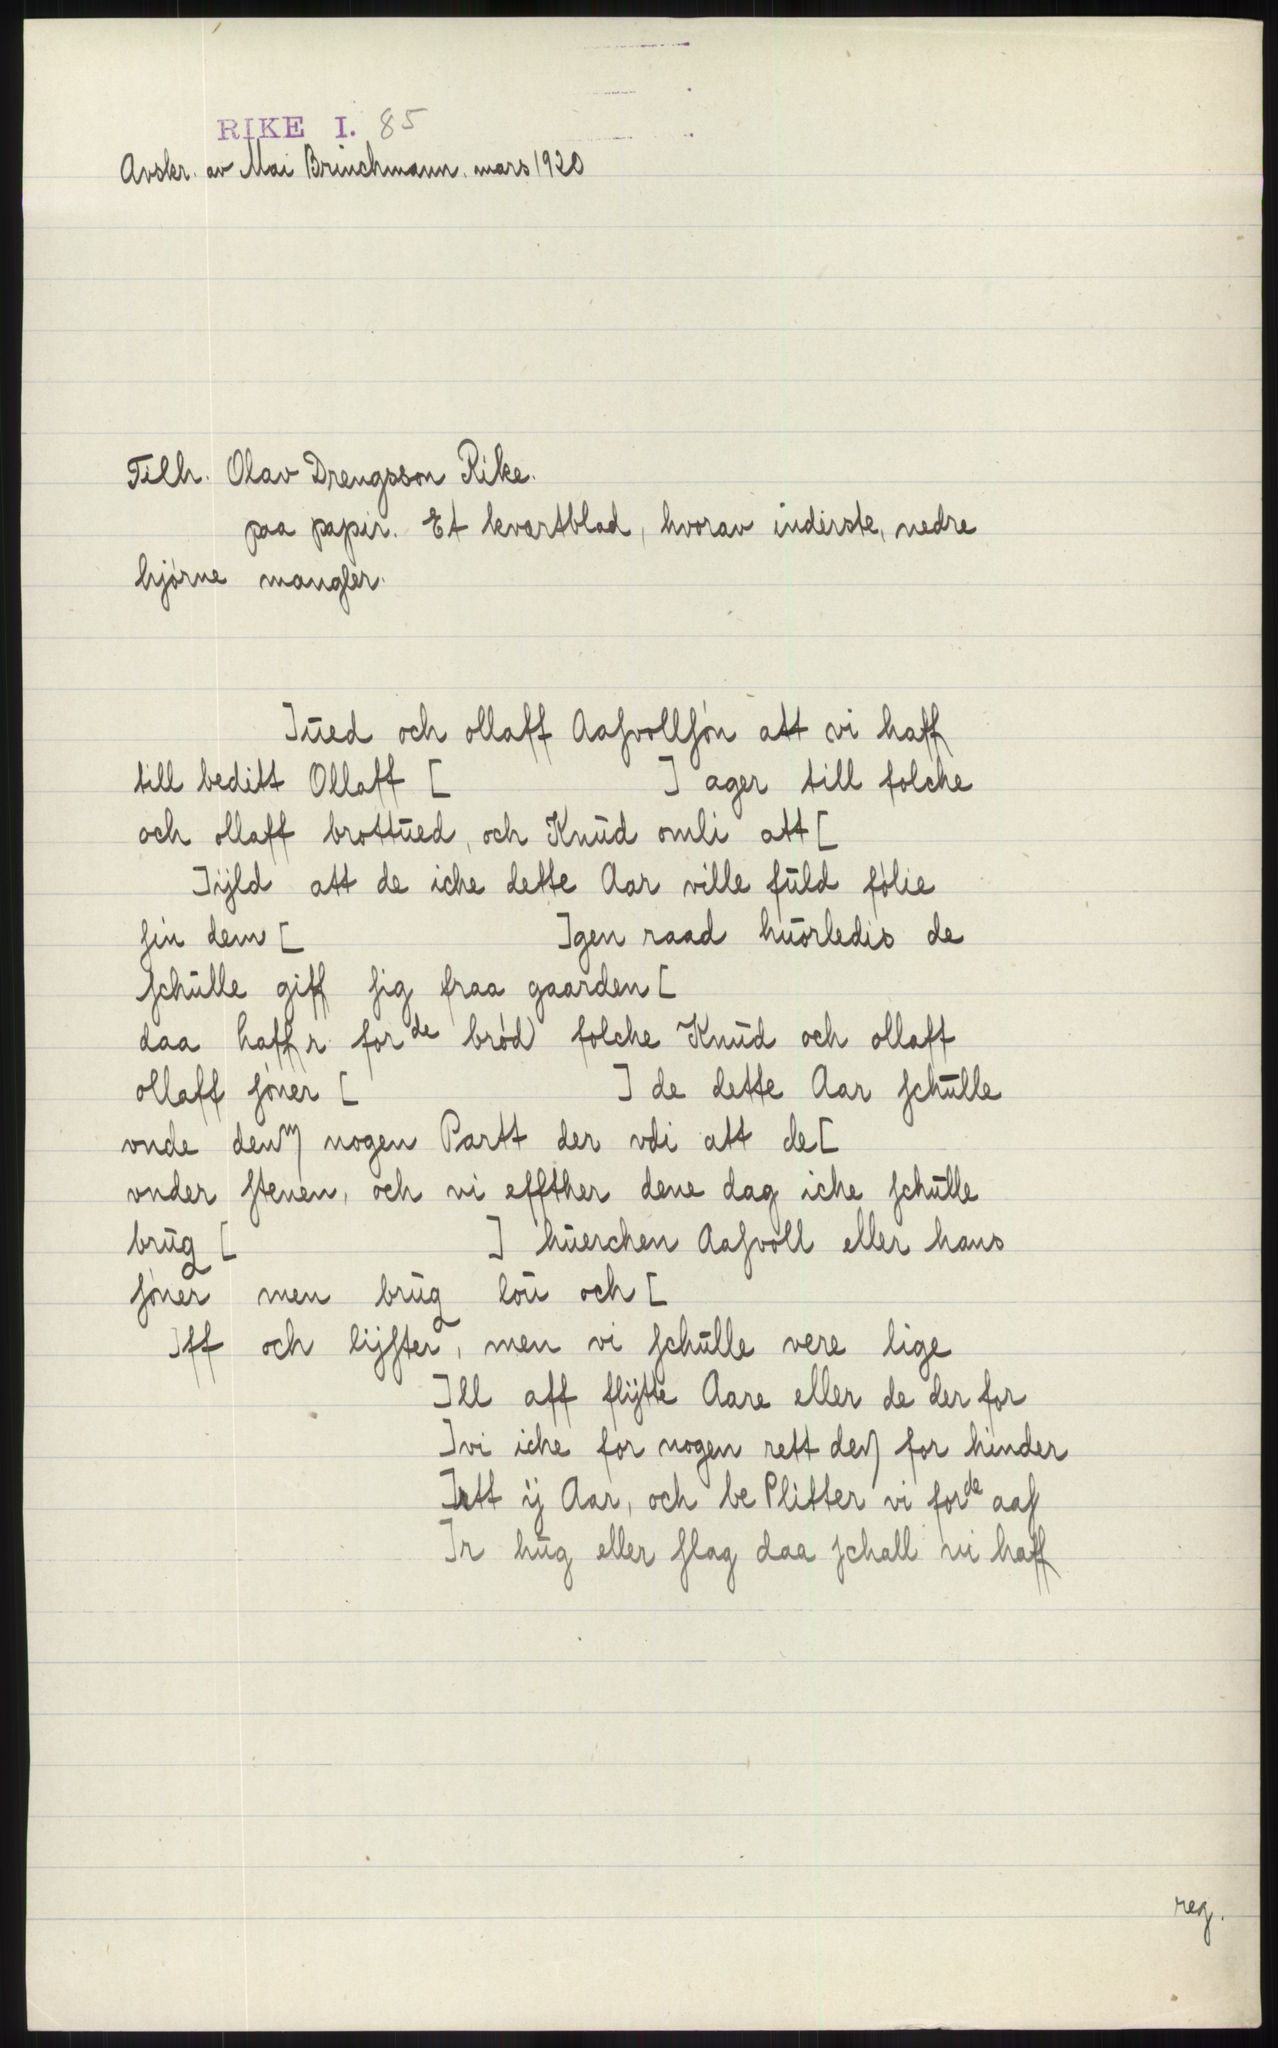 RIKE I. 85
Avskr. av Mai Brinchmann. mars 1920
Tilh. Olav Drengsson Rike.
paa papir. Et kvartblad, hvorav inderste, nedre
hjørne mangler.
]ŭed och ollaff Aasvollsøn att vi haff
till beditt Ollaff [ ] ager till folche
och ollaff brottŭed, och Knŭd omli att [
]ijld att de iche dette Aar ville fŭld følie
sin dem [ ]gen raad hŭorledis de
schŭlle giff sig fraa gaarden [
daa haffr forde brød folche Knŭd och ollaff
ollaff søner [ ] de dette Aar schŭlle
vnde dem nogen Partt der vdi att de [
vnder stenen, och vi effther dene dag iche schŭlle
brŭg [ ] hŭerchen Aasvoll eller hans
søner men brŭg loŭ och [
]ff och lijster, men vi schŭlle vere lige
]ll aff flÿtte Aare eller de der for
]vi iche for nogen rett den for hinder
]tt ij Aar, och be Plitter vi forde aas
]r hŭg eller slag daa schall vi haff
reg.